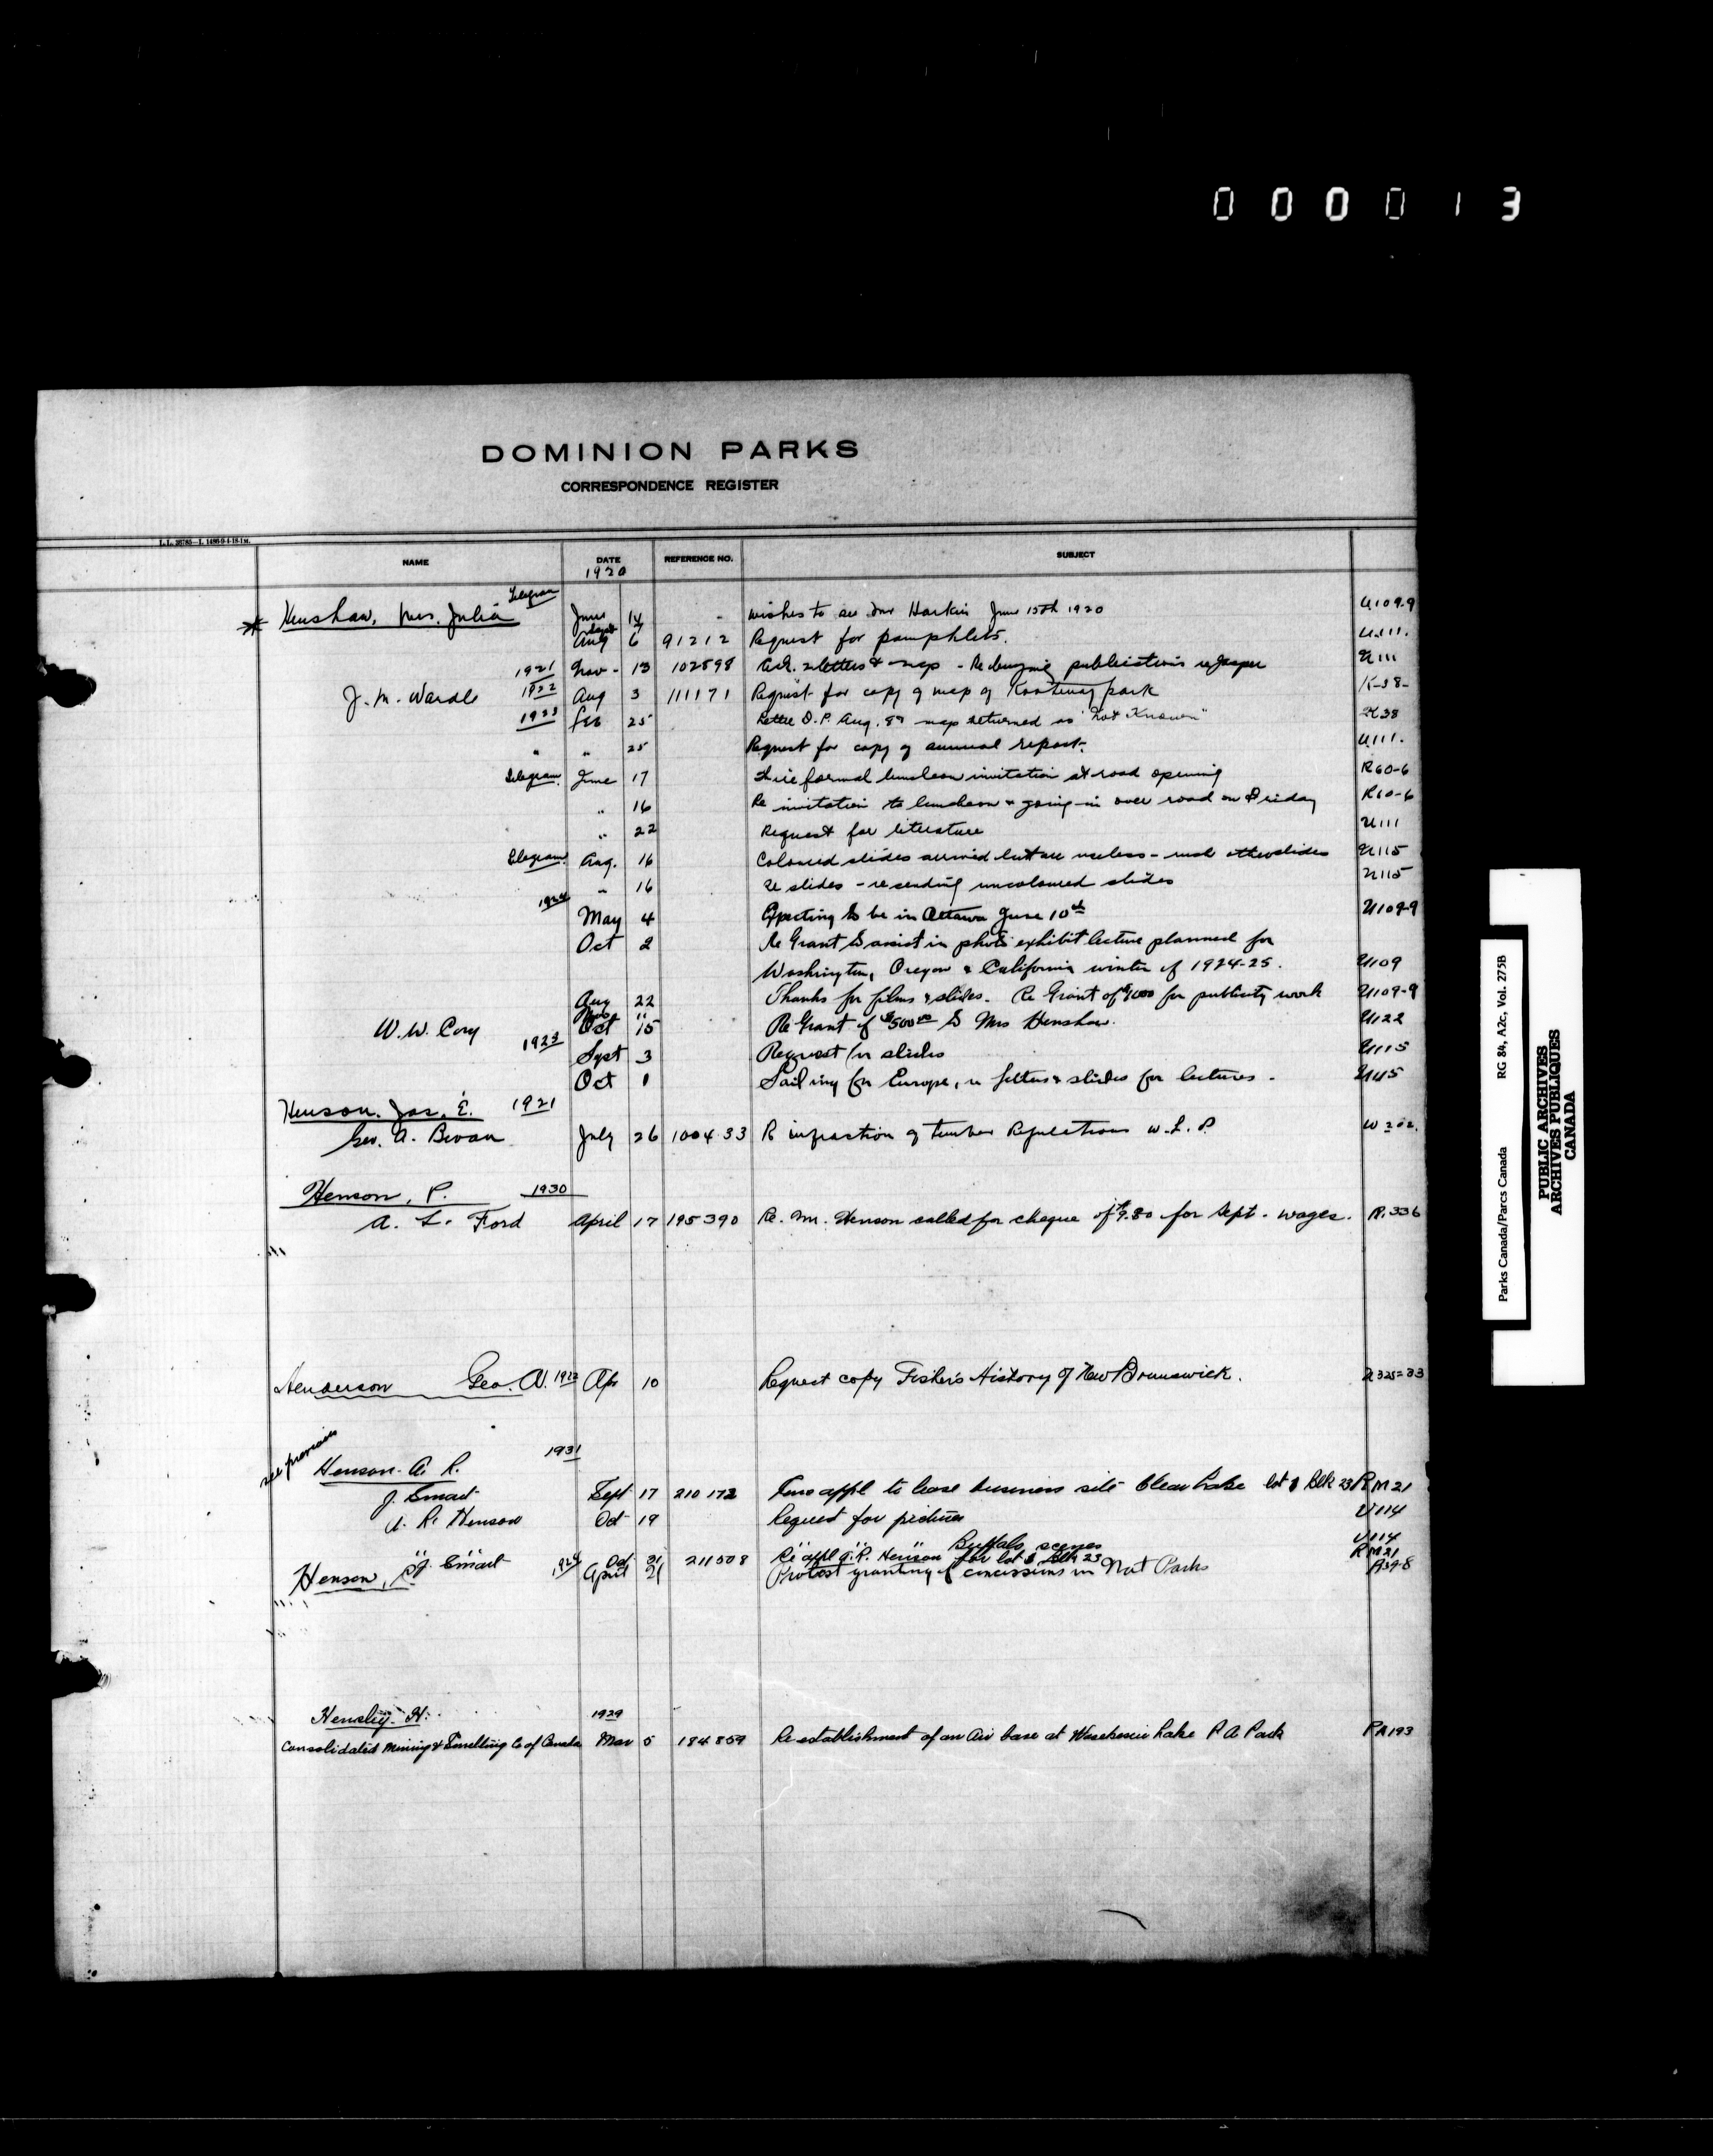 000013
DOMINION PARKS
CORRESPONDENCE REGISTER
L.L. 36785—I. 1486-9-4-18-1M.
NAME DATE REFERENCE NO. SUBJECT
1920
Henshaw, Mrs. Julia Telegram June 14 wishes to see Mr Harkin June 15th 1920 U109-9
Aug 6 91212 Request for pamphlets. U111.
1921 Nov- 13 102598 Ack. letters & map - Re buying publications re Jasper U111
J. M. Wardle 1922 Aug 3 111171 Request for copy of map of Kootenay park K-38-
1923 Feb 25 Letter D.P. Aug. 8th map returned as "Not Known" K38
" " 25 Request for copy of annual report. U111.
Telegram June 17 formal luncheon invitation at road opening R60-6
" 16 Re invitation to luncheon & going in over road on Friday R60-6
" 22 Request for literature U111
Telegram Aug. 16 Coloured slides arrived but are useless - rush other slides U115
" 16 Re slides - re sending uncoloured slides U115
1924
May 4 Expecting to be in Ottawa June 10th U109-9
Oct 2 Re Grant to assist in photo exhibit lecture planned for
Washington, Oregon & California winter of 1924-25. U109
Aug 22 Thanks for films & slides. Re Grant of $1000 for publicity work U109-9
W. W. Cory Oct 15 Re Grant of $500.00 to Mrs Henshaw. U122
1923 Sept 3 Request for slides U115
Oct 1 Sailing for Europe, re slides for lectures. U115
Henson, Jas. E. 1921
Geo. A. Bevan July 26 100433 Re infraction of timber Regulations W.L.P. W202.
Henson, P. 1930
A. L. Ford April 17 195390 Re. Mr. Henson called for cheque of $9.80 for Sept. wages. R.336
Henderson Geo. A. 1922 Apr 10 Request copy Fisher's History of New Brunswick. U325-33
see previous
Henson A. R. 1931
J. Smart Sept 17 210172 appl to lease business site Clear Lake lot 1 Blk 23 RM21
A. R. Henson Oct 19 Request for pictures U114
" " " " Buffalo scenes U114
J. Smart Oct 31 211508 Re appl A.R. Henson for lot 1 Blk 23 RM21
Henson, 1924 April 21 Protest granting of concessions in Nat Parks
Hensley H. 1929
Consolidated Mining & Smelting Co of Canada Mar 5 184859 Re establishment of an Air base at Waskesiu Lake P A Park PA193
Parks Canada/Parcs Canada RG 84, A2c, Vol. 275B
PUBLIC ARCHIVES
ARCHIVES PUBLIQUES
CANADA